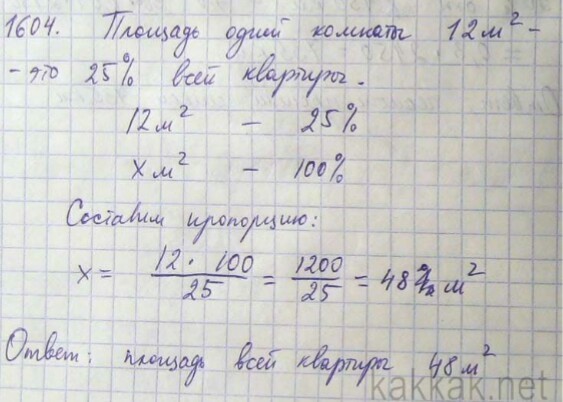 1604. Площадь одной комнаты 12 м² -
- это 25% всей квартиры.
12 м² - 25%
х м² - 100%
Составим пропорцию:
х = 12 · 100 / 25 = 1200 / 25 = 48 м²
Ответ: площадь всей квартиры 48 м²
kakkak.net